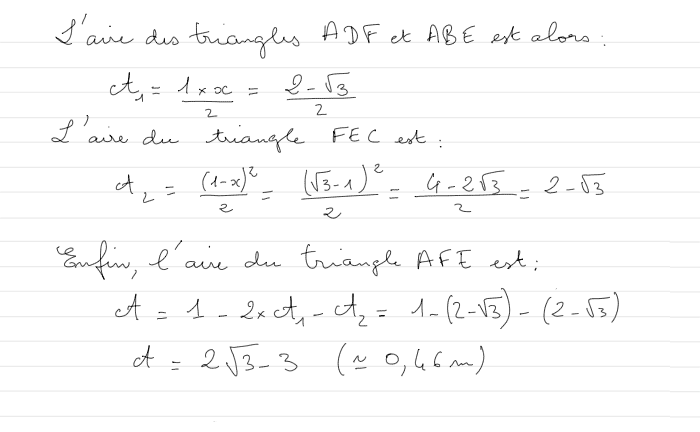 L'aire des triangles ADF et ABE est alors :
A₁ = (1 × x)/2 = (2 - √3)/2
L'aire du triangle FEC est :
A₂ = (1-x)²/2 = (√3 - 1)²/2 = (4 - 2√3)/2 = 2 - √3
Enfin, l'aire du triangle AFE est :
A = 1 - 2×A₁ - A₂ = 1 - (2-√3) - (2-√3)
A = 2√3 - 3 (≃ 0,46 m)